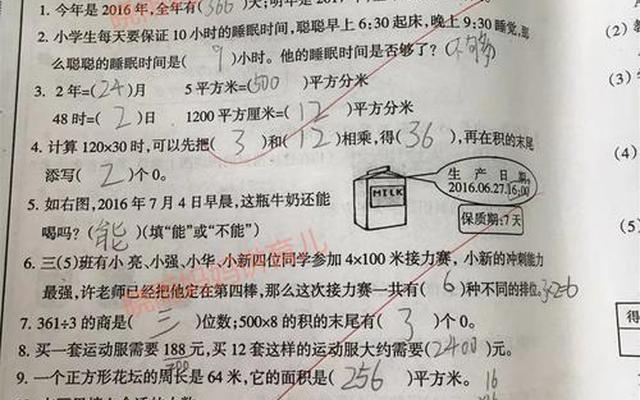 1. 今年是2016年,全年有(366)天;明年是2017年
2. 小学生每天要保证10小时的睡眠时间,聪聪早上6:30起床,晚上9:30睡觉,那
么聪聪的睡眠时间是( 9 )小时。他的睡眠时间是否够了?(不够)
3. 2年=(24)月 5平方米=(500)平方分米
48时=( 2 )日 1200平方厘米=( 12 )平方分米
4. 计算120×30时,可以先把( 3 )和( 12 )相乘,得( 36 ),再在积的末尾
添写( 2 )个0。
生产日期
2016.06.27.16:00
MILK
保质期:7天
5. 如右图,2016年7月4日早晨,这瓶牛奶还能
喝吗?(能)(填“能”或“不能”)
6. 三(5)班有小亮、小强、小华、小新四位同学参加4×100米接力赛,小新的冲刺能力
最强,许老师已经把他定在第四棒,那么这次接力赛一共有( 6 )种不同的排位。
7. 361÷3的商是( 三 )位数;500×8的积的末尾有( 3 )个0。
8. 买一套运动服需要188元,买12套这样的运动服大约需要(2400)元。
9. 一个正方形花坛的周长是64米,它的面积是( 256 )平方米。 16
(2)
(3)
(4)
(5)